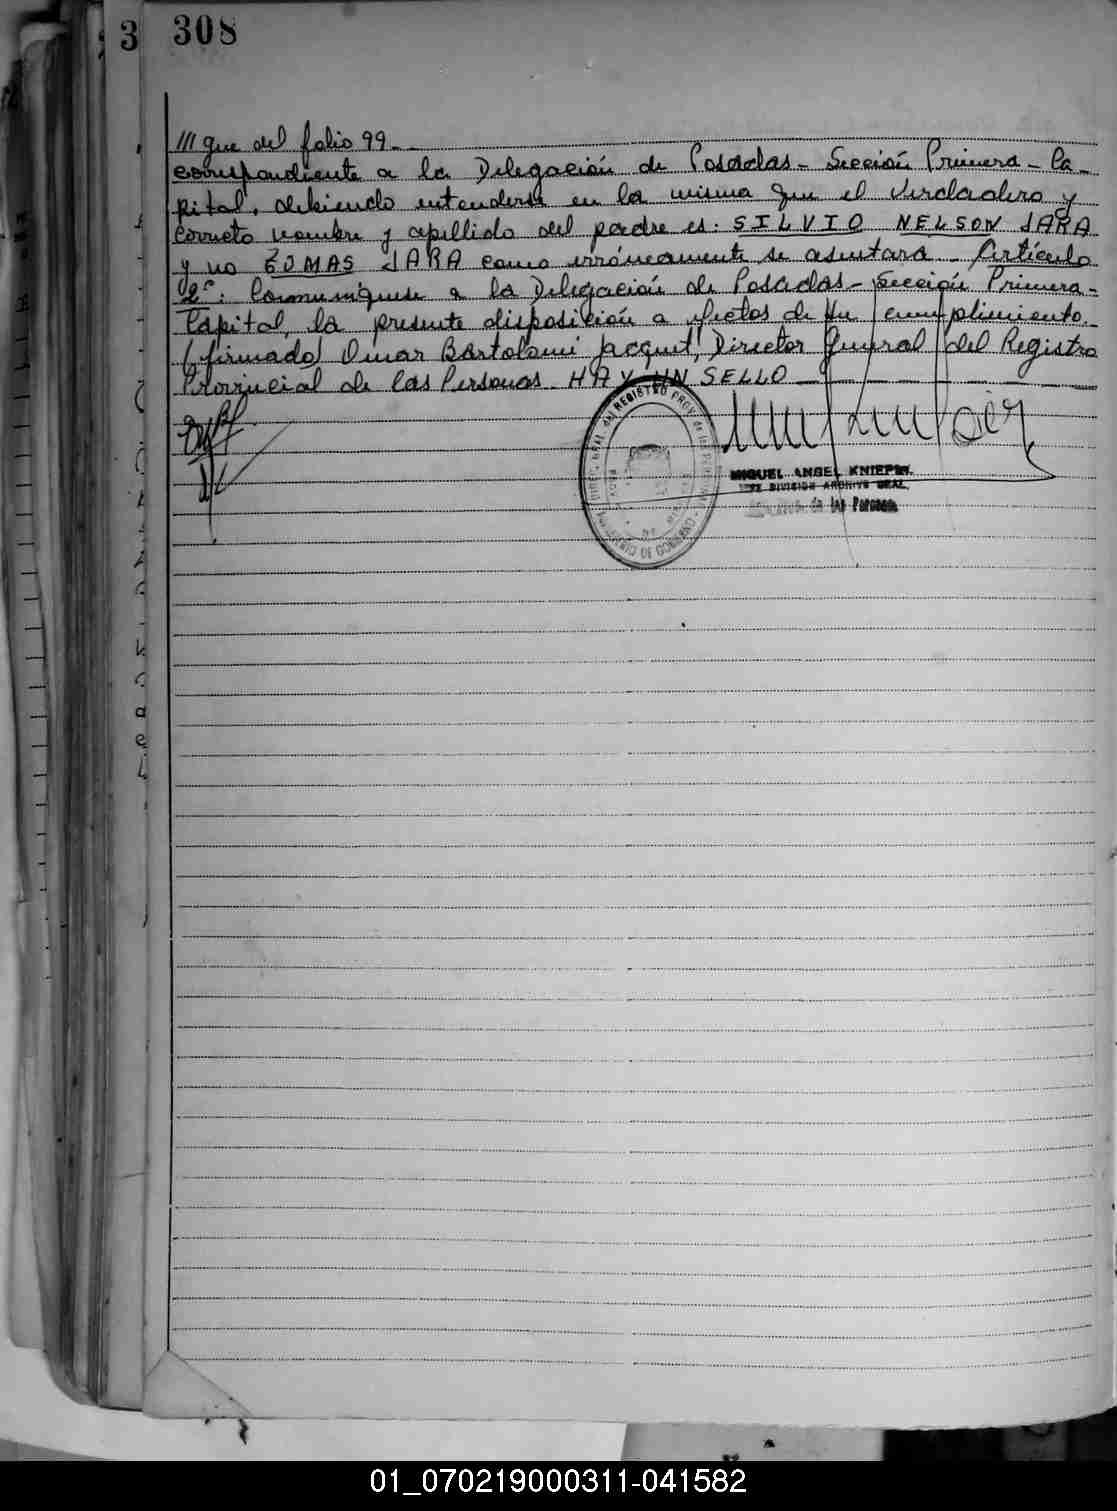 3 308
/// gue del folio 99_ _
correspondiente a la Delegación de Posadas - Sección Primera - Ca-
pital, debiendo entenderse en la misma que el verdadero y
correcto nombre y apellido del padre es: SILVIO NELSON JARA
y no TOMAS JARA como erróneamente se asentara - Artículo
2º: Comuníquese a la Delegación de Posadas - Sección Primera -
Capital, la presente disposición a efectos de su cumplimiento.
(firmado) Omar Bartolomé Jacquet, Director General del Registro
Provincial de las Personas HAY UN SELLO
DIREC. GRAL. del REGISTRO PROV. de las PERSONAS
MINISTERIO DE GOBIERNO
MIGUEL ANGEL KNIEPER
JEFE DIVISION ARCHIVO GRAL.
de las Personas
01_070219000311-041582